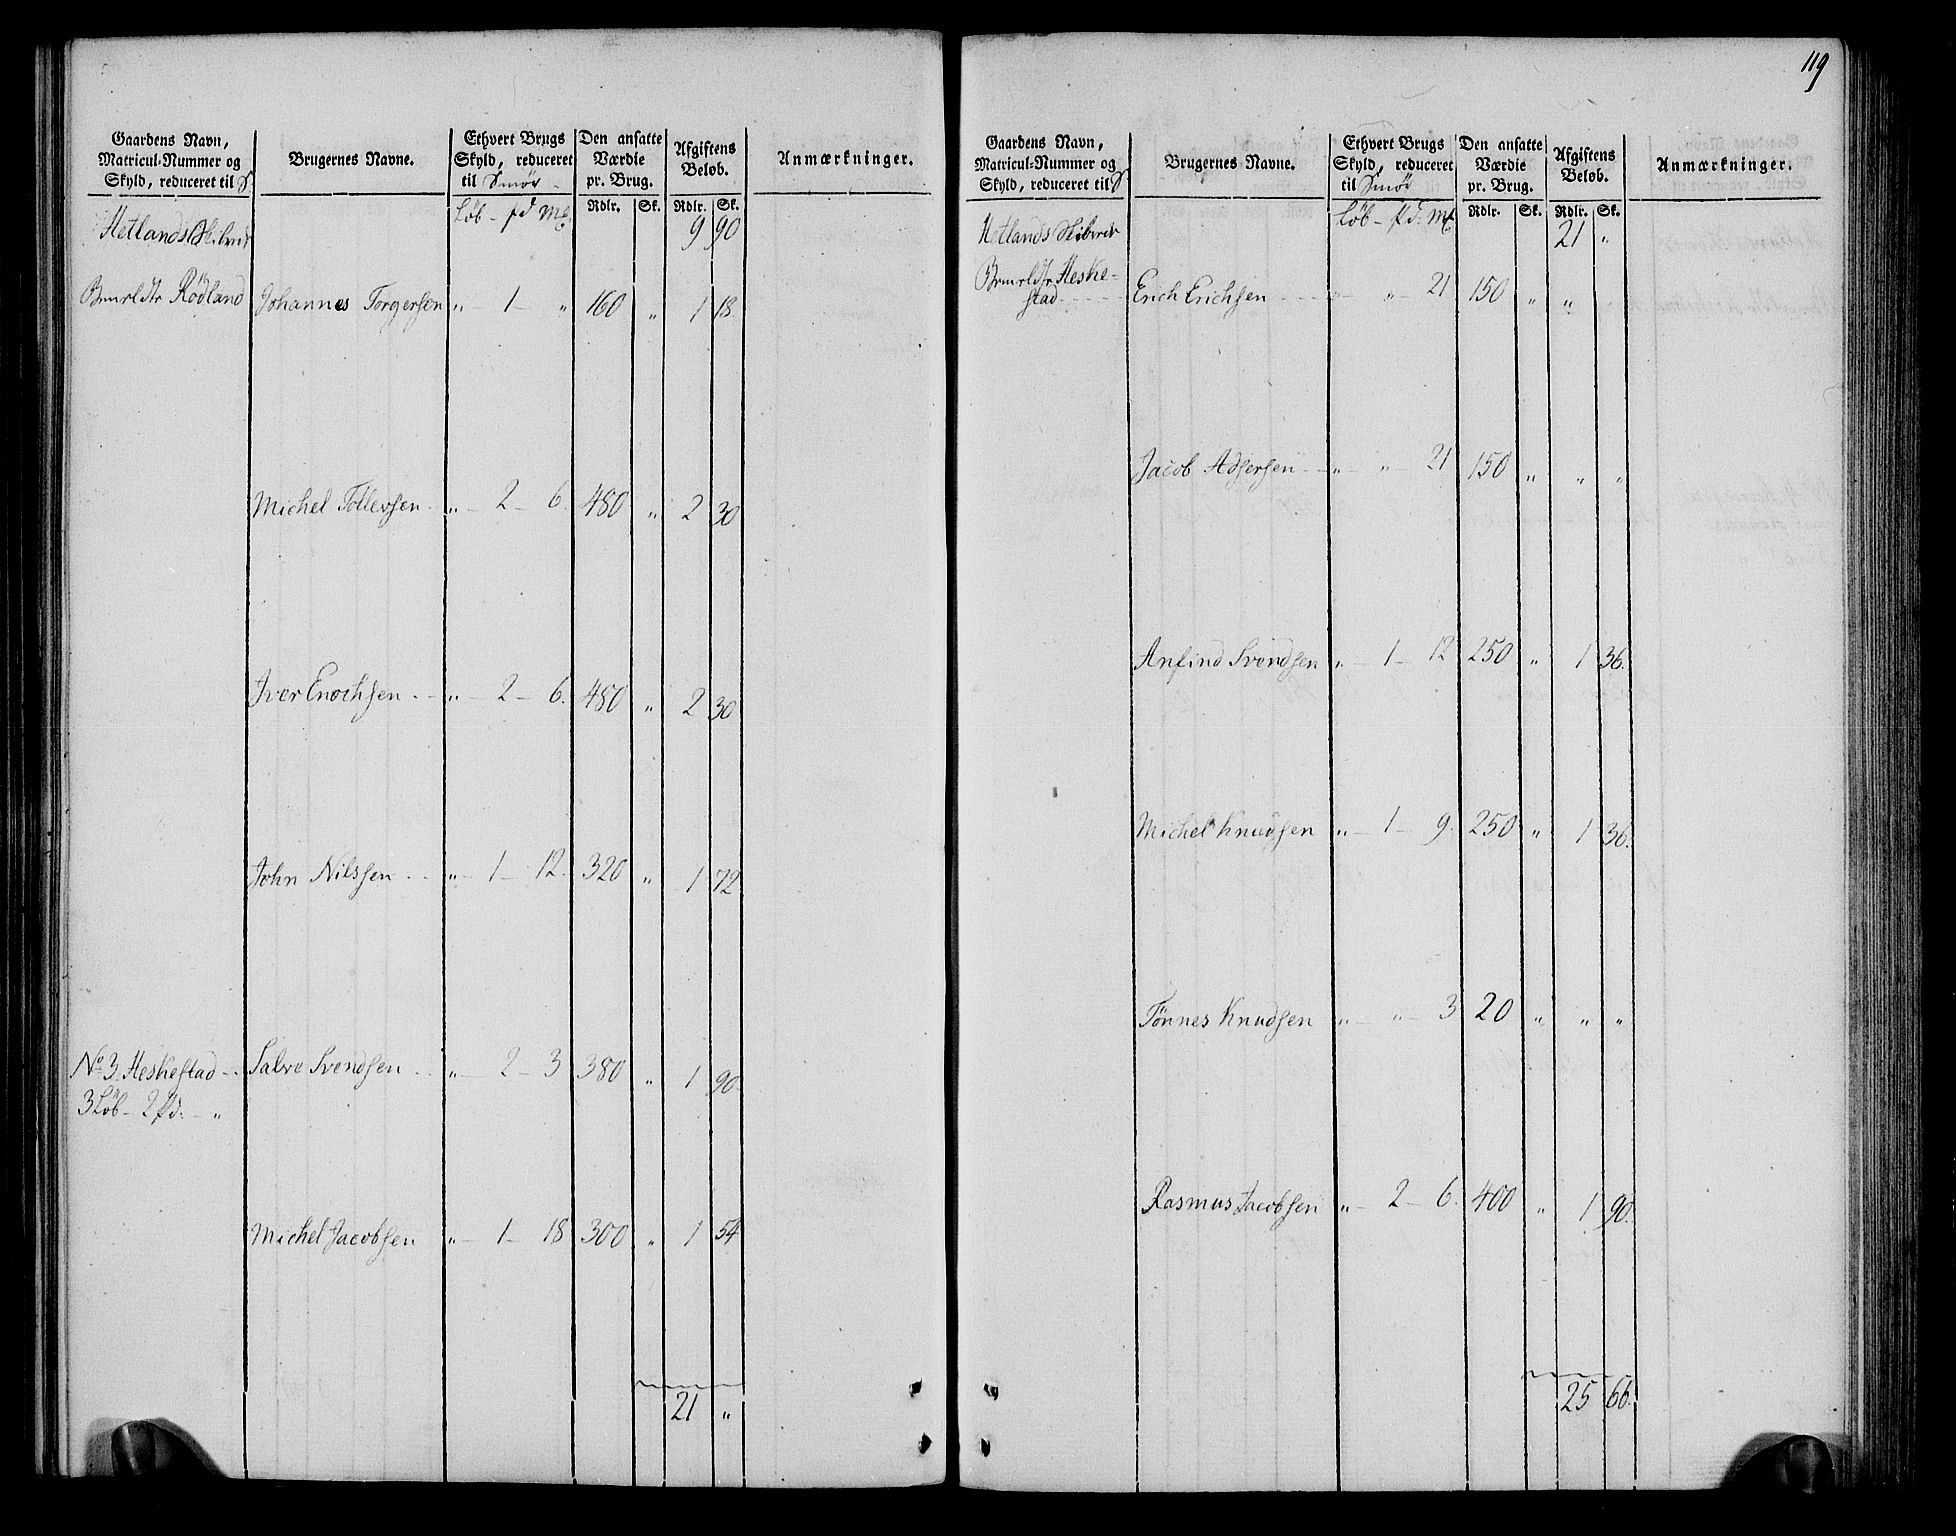 Gaardens Navn, Matricul-Nummer og Skyld, reduceret til S
Brugernes Navne.
Ethvert Brugs Skyld, reduceret til Smör
Den ansatte Værdie pr. Brug.
Afgiftens Beløb.
Anmærkninger.
Löb - pd Mk. Rdlr. Sk. Rdlr. Sk.
Hetlands Skibrede 9 90
Rödland Johannes Torgersen „ - 1 - „ 160 „ 1 18.
Michel Tollefsen - „ - 2 - 6. 480 „ 2 30
Iver Enochsen - „ - 2 - 6. 480 „ 2 30
John Nilssen - „ - 1 - 12. 320 „ 1 72
No 3. Heskestad - Salve Svendsen - „ - 2 - 3 380 „ 1 90
3 Löb - 2 pd. - „
Michel Jacobsen „ - 1 - 18 300 „ 1 54
21 „
119
Gaardens Navn, Matricul-Nummer og Skyld, reduceret til S
Brugernes Navne.
Ethvert Brugs Skyld, reduceret til Smör
Den ansatte Værdie pr. Brug.
Afgiftens Beløb.
Anmærkninger.
Löb - pd. Mk. Rdlr. Sk. Rdlr. Sk.
Hetlands Skibrede 21 „
Heske-
stad - Erich Erichsen - „ - „ - 21 150 „ „
Jacob Adsersen - „ - „ - 21 150 „ „ „
Anfind Svendsen „ - 1 - 12 250 „ 1 36.
Michel Knudsen „ - 1 - 9. 250 „ 1 36.
Tönnes Knudsen „ - „ - 3 20 „ „ „
Rasmus Jacobsen „ - 2 - 6. 400 „ 1 90.
25 66.